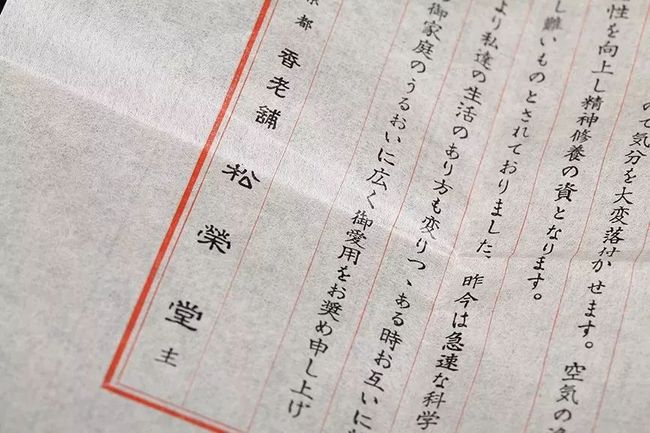 ので気分を大変落付かせます。空気の
性を向上し精神修養の資となります。
し難いものとされておりました、昨今は急速な科学
より私達の生活のあり方も変りつゝある時お互いに
御家庭のうるおいに広く御愛用をお奨め申し上げ
都 香老舗 松榮堂 主